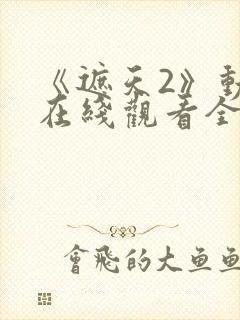 《遮天2》動
在綫觀看全
會飛的大魚魚